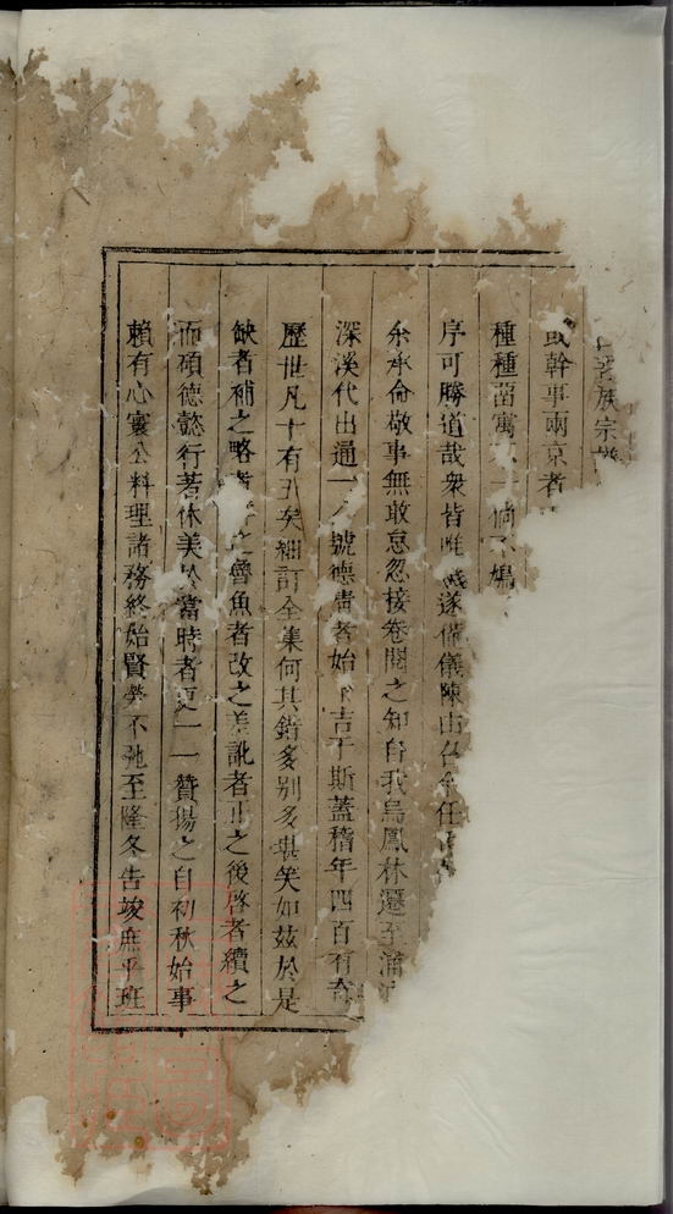 族宗
或幹事兩京者
種種菑寓一倘不鳩
序可勝道哉衆皆唯遂備儀陳由召余任
余承命敬事無敢怠忽接卷閱之知自我烏鳳林遷至浦
深溪代出通一公號德肅者始卜吉于斯蓋稽年四百有奇
歷世凡十有五矣細訂全集何其錯多別多堪笑如茲於是
缺者補之略者之魯魚者改之差訛者正之後啓者續之
而碩德懿行若休美於當時者更一一贊揚之自初秋始事
賴有心寰公料理諸務終始賢勞不弛至隆冬告竣庶乎班